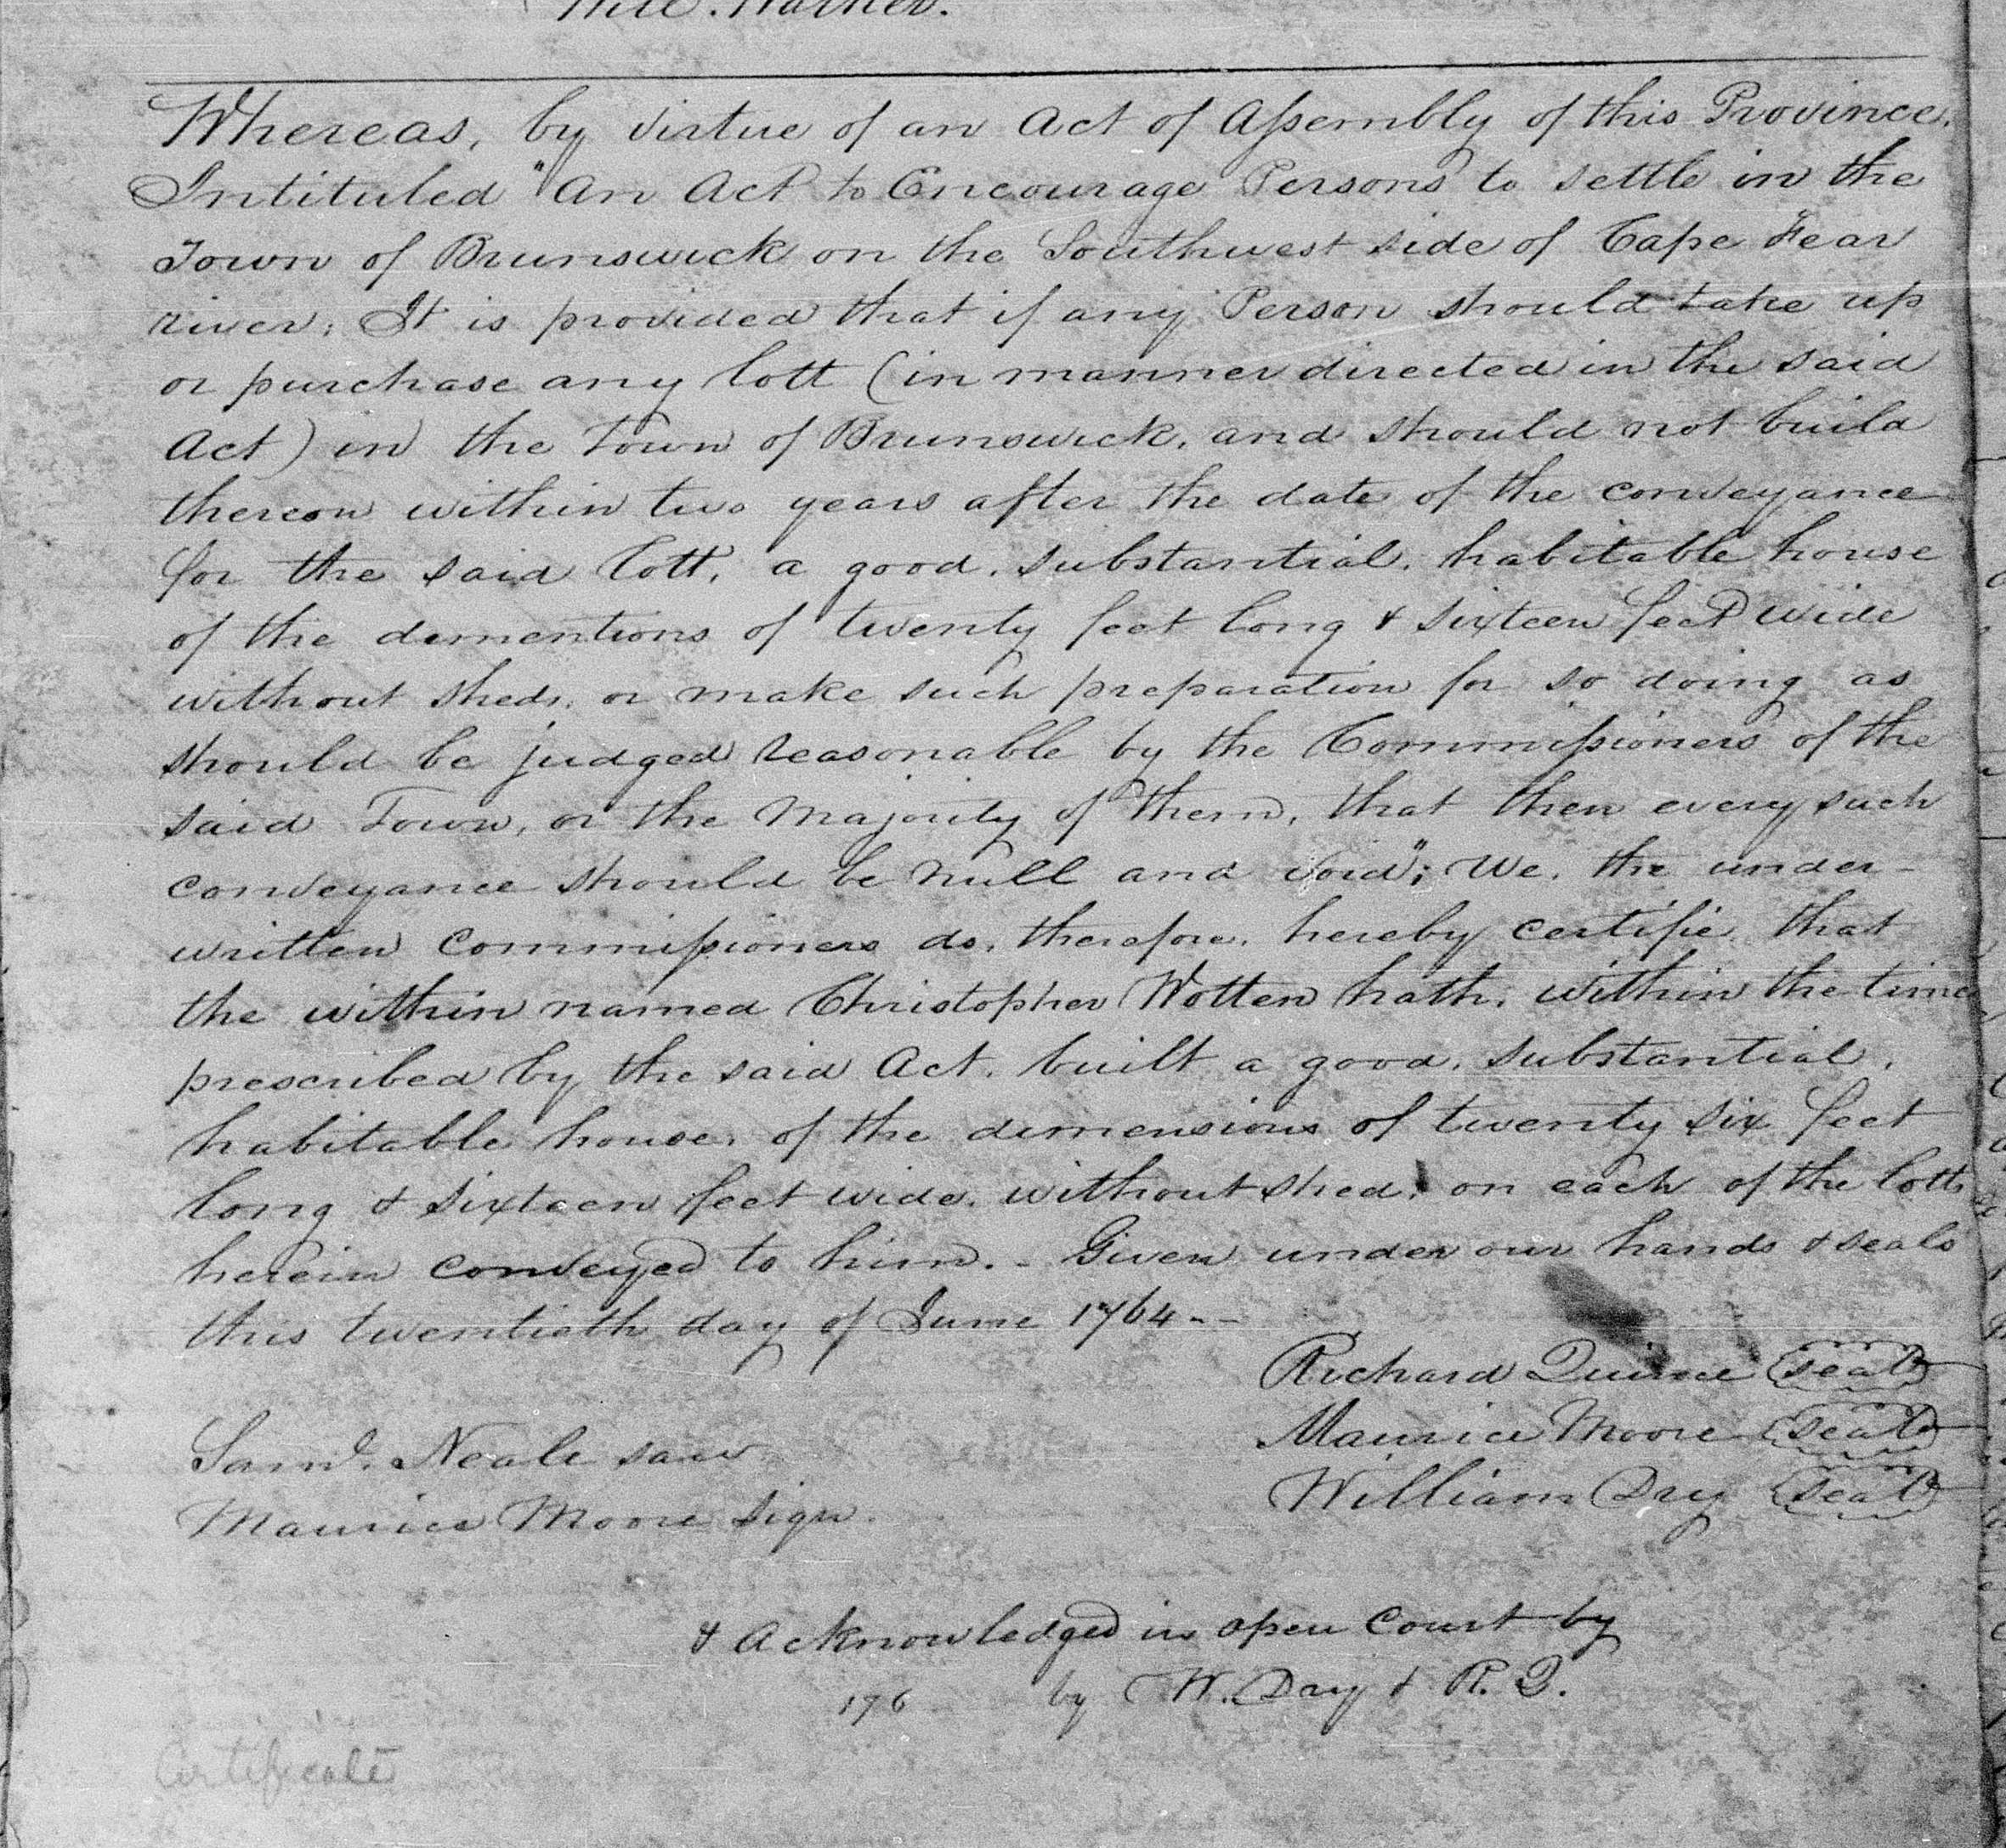 Whereas, by virtue of an Act of Assembly of this Province,
Intituled "An Act to Encourage Persons to settle in the
Town of Brunswick on the Southwest side of Cape Fear
river; It is provided that if any Person should take up
or purchase any lott (in manner directed in the said
Act) in the Town of Brunswick, and should not build
thereon within two years after the date of the conveyance
for the said lott, a good, substantial, habitable house
of the dimentions of twenty feet long & sixteen feet wide
without sheds, or make such preparation for so doing as
should be judged reasonable by the Commissioners of the
said Town, or the Majority of them, that then every such
conveyance should be Null and void"; We, the under-
written Commissioners do, therefore, hereby certifie that
the within named Christopher Wotten hath, within the time
prescribed by the said Act, built a good, substantial,
habitable house, of the dimensions of twenty six feet
long & sixteen feet wide, without shed, on each of the lotts
herein conveyed to him. - Given under our hands & seals
this twentieth day of June 1764 --
Richard Quince seal
Maurice Moore seal
Saml. Neale saw
William Dry seal
Maurice Moore sign.
& Acknowledged in open Court by
176 by W. Dry & R. Q.
Certificate